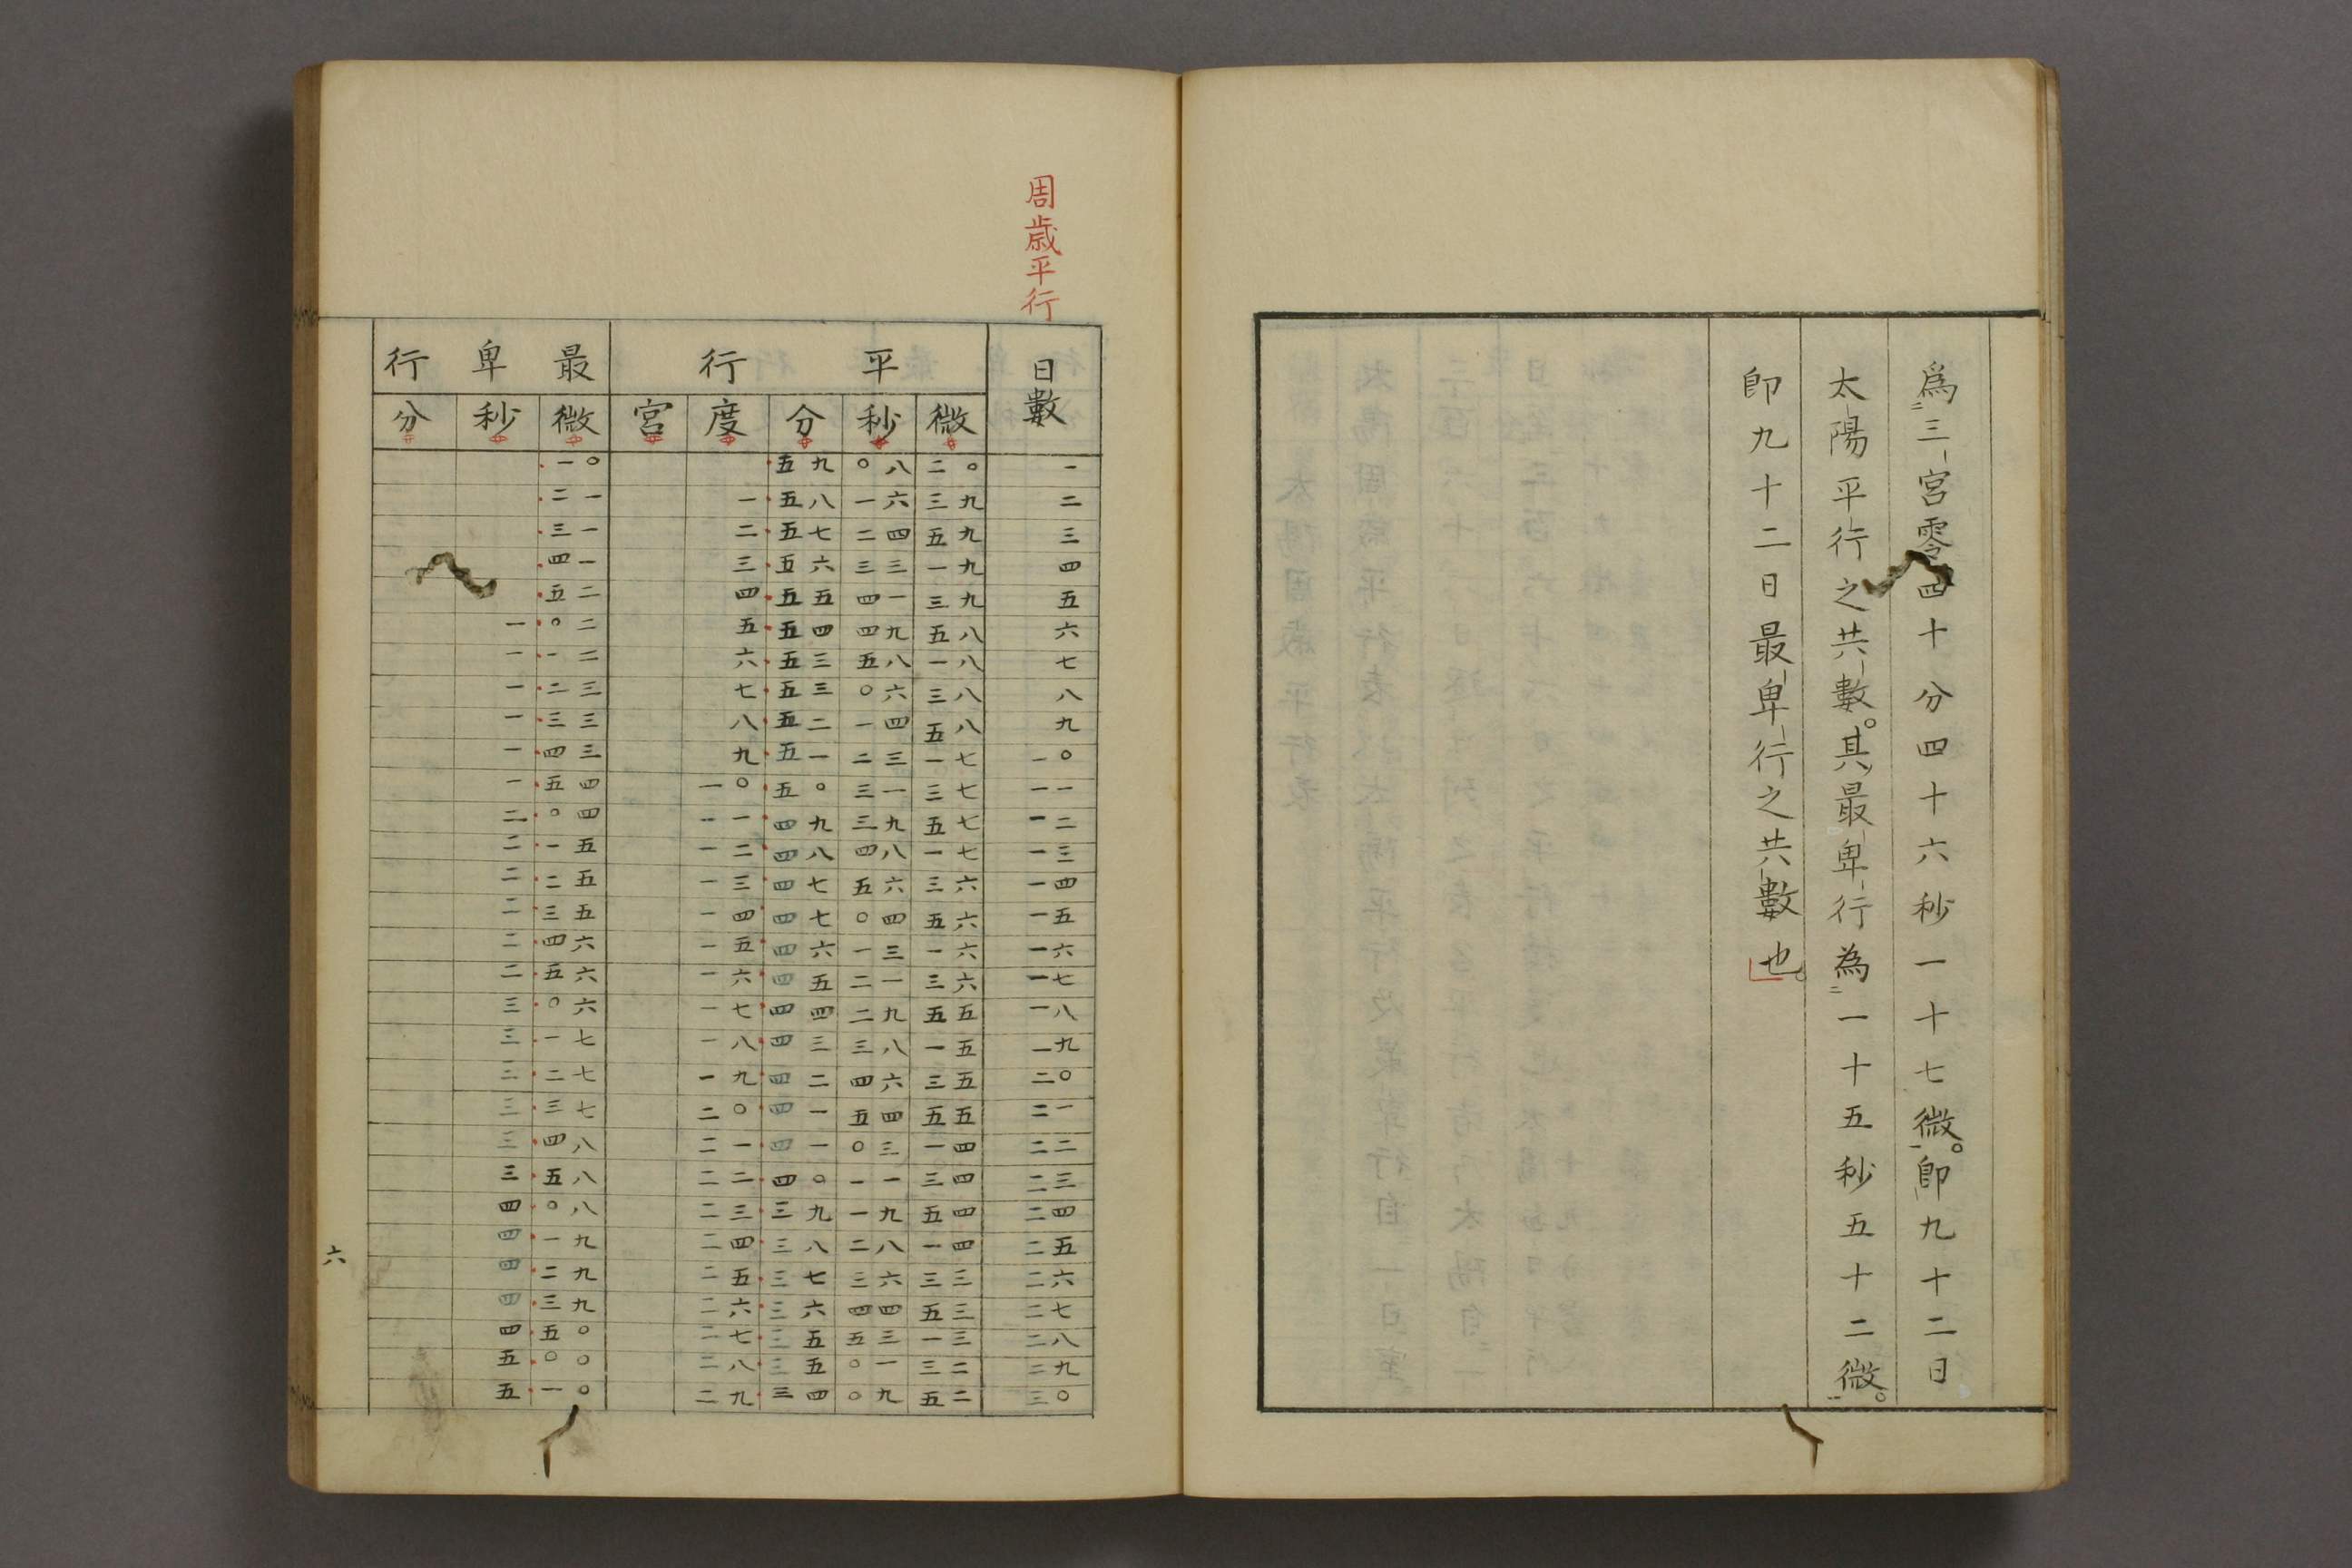 爲三宮零四十分四十六秒一十七微。卽九十二日
太陽平行之共數。其最卑行為一十五秒五十二微。
卽九十二日最卑行之共數也。
周歳平行
日數 平行 最卑行
微 秒 分 度 宮 微 秒 分
一 二〇 〇八 五九 一〇
二 三九 一六 五八 一 二一
三 五九 二四 五七 二 三一
四 一九 三三 五六 三 四一
五 三九 四一 五五 四 五二
六 五八 四九 五四 五 〇二 一
七 一八 五八 五三 六 一二 一
八 三八 〇六 五三 七 二三 一
九 五八 一四 五二 八 三三 一
一〇 一七 二三 五一 九 四三 一
一一 三七 三一 五〇 一〇 五四 一
一二 五七 三九 四九 一一 〇四 二
一三 一七 四八 四八 一二 一五 二
一四 三六 五六 四七 一三 二五 二
一五 五六 〇四 四七 一四 三五 二
一六 一六 一三 四六 一五 四六 二
一七 三六 二一 四五 一六 五六 二
一八 五五 二九 四四 一七 〇六 三
一九 一五 三八 四三 一八 一七 三
二〇 三五 四六 四二 一九 二七 三
二一 五五 五四 四一 二〇 三七 三
二二 一四 〇三 四一 二一 四八 三
二三 三四 一一 四〇 二二 五八 三
二四 五四 一九 三九 二三 〇八 四
二五 一四 二八 三八 二四 一九 四
二六 三三 三六 三七 二五 二九 四
二七 五三 四四 三六 二六 三九 四
二八 一三 五三 三五 二七 五〇 四
二九 三二 〇一 三五 二八 〇〇 五
三〇 五二 〇九 三四 二九 一〇 五
六